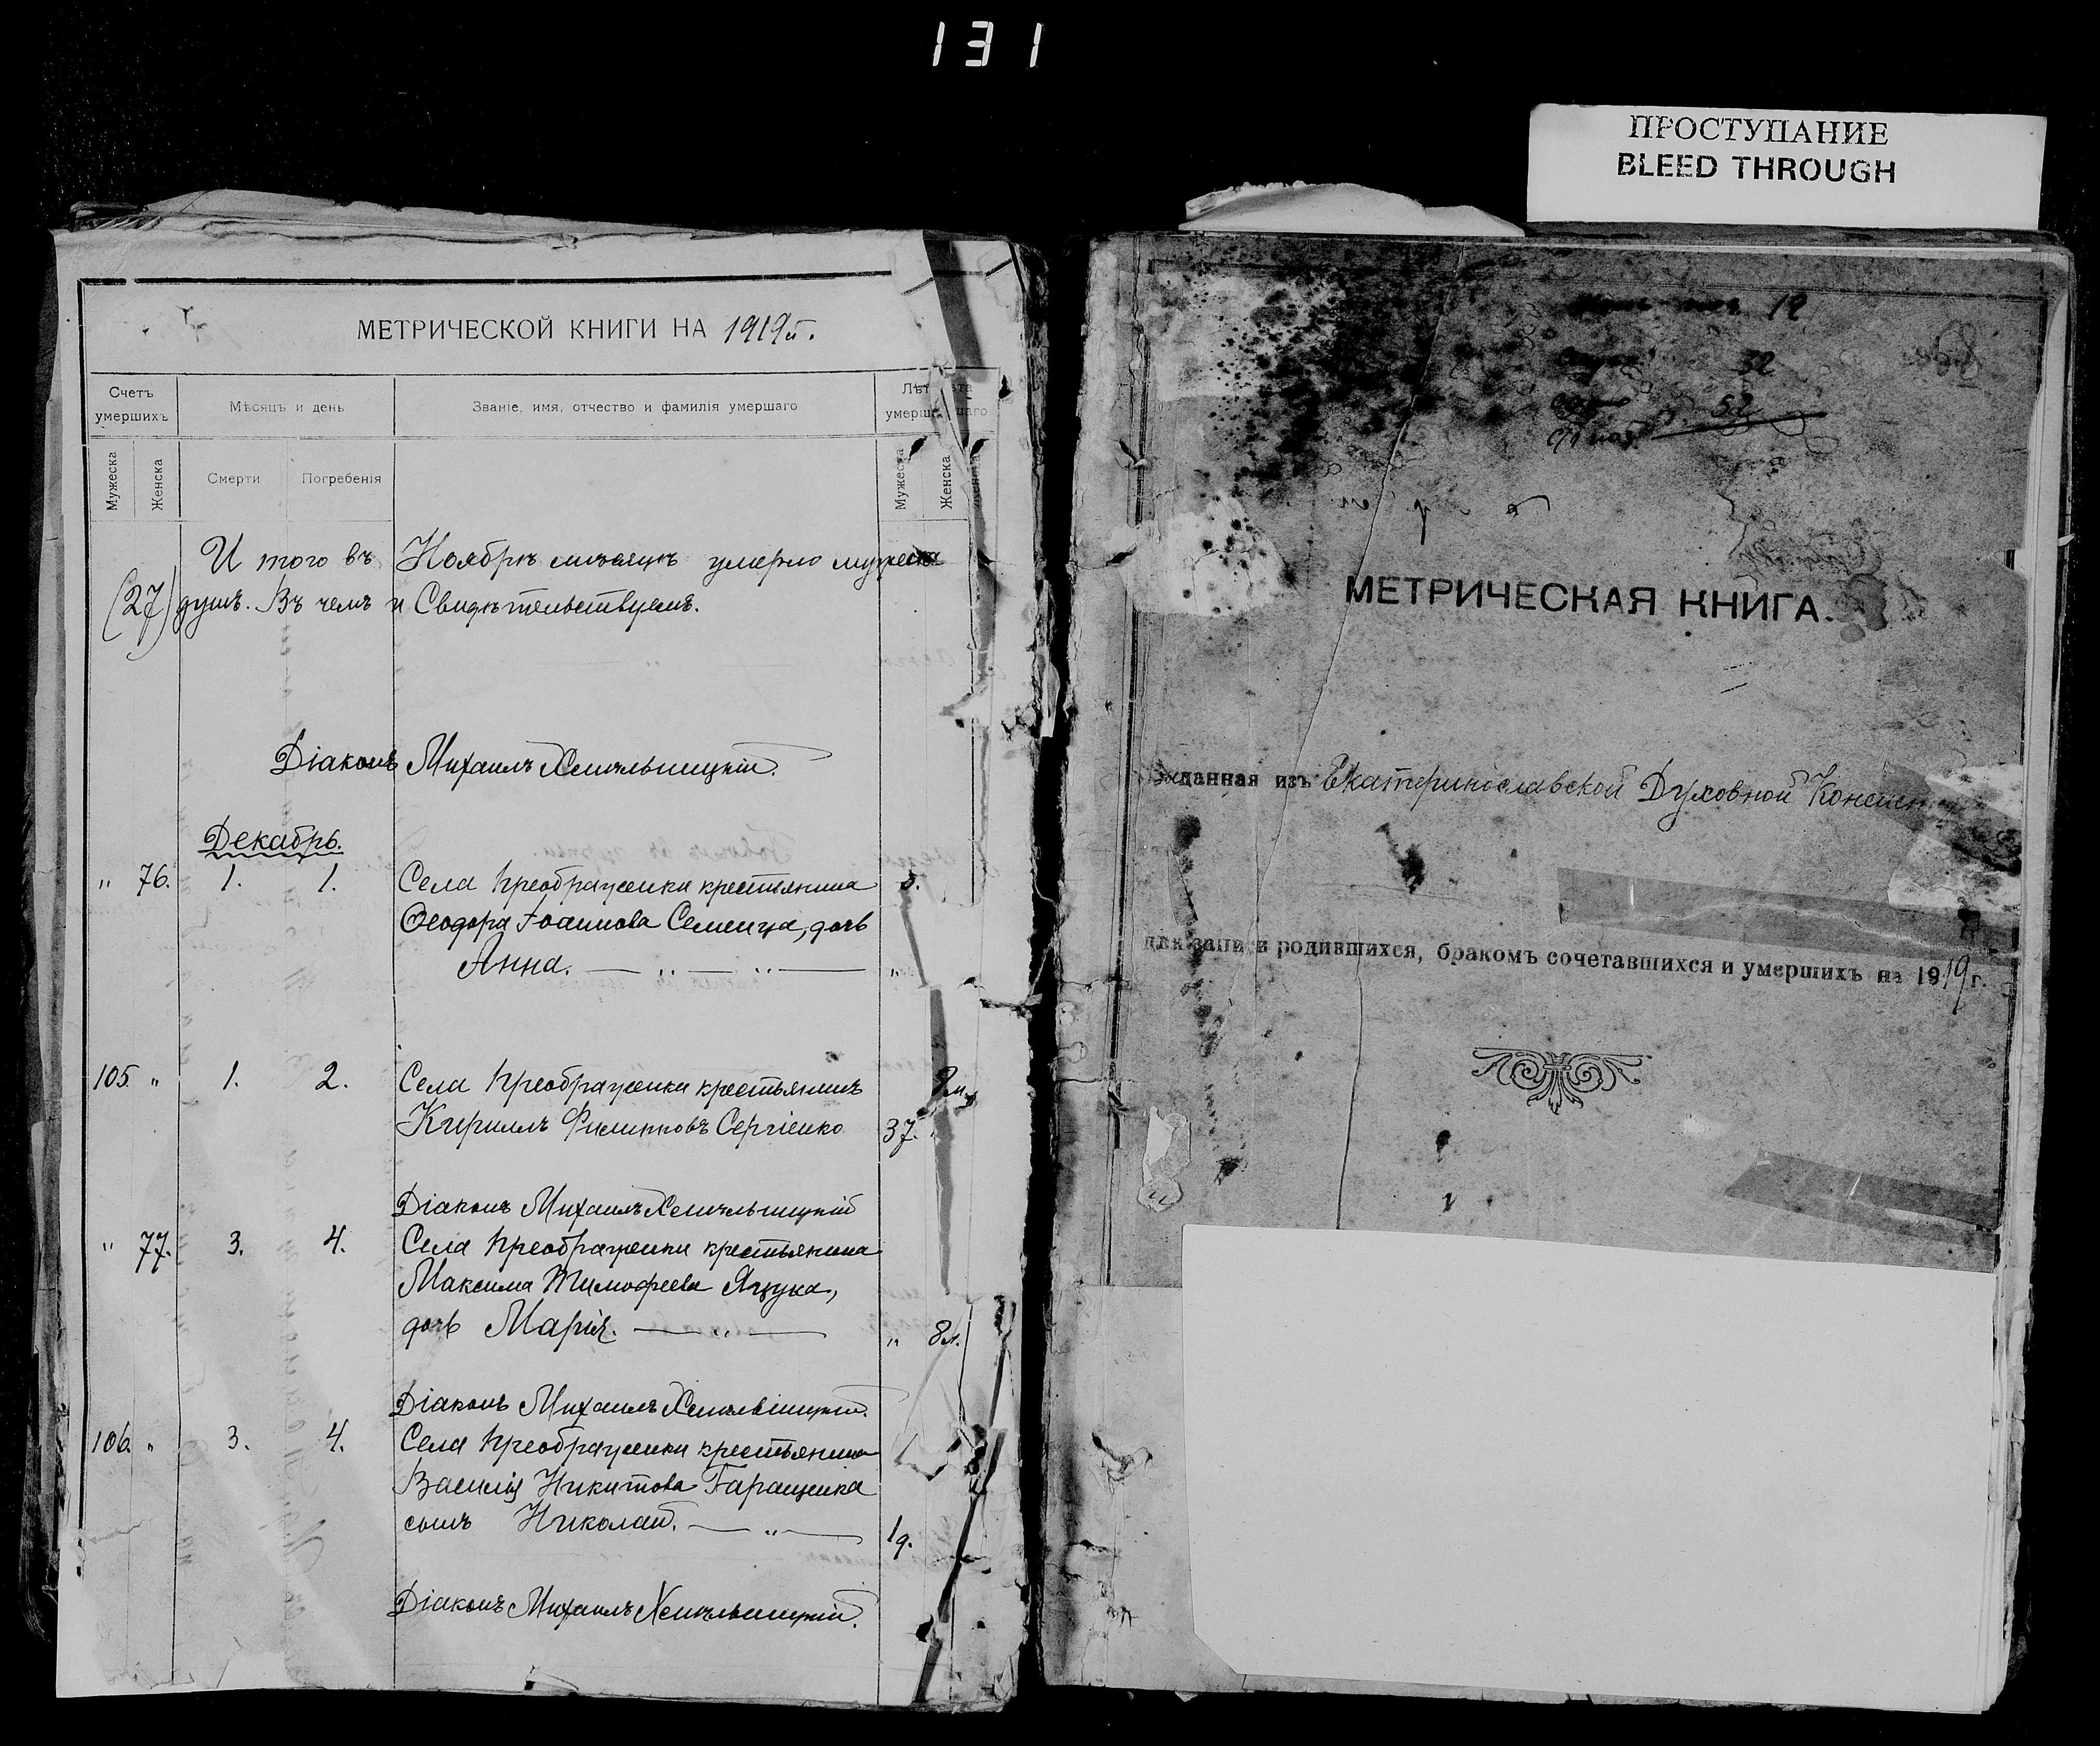 131
ПРОСТУПАНИЕ
BLEED THROUGH
МЕТРИЧЕСКОЙ КНИГИ НА 1919 г.
Счетъ умершихъ
Мѣсяцъ и день
Званіе, имя, отчество и фамилія умершаго
Мужеска
Женска
Смерти
Погребенія
Мужеска
Женска
И того въ Ноябрѣ мѣсяцѣ умерло мужеска
(27) душъ. Въ чемъ и Свидѣтельствуемъ.
Діаконъ Михаилъ Хмѣльницкій.
Декабрь.
" 76. 1. 1. Села Преображенки крестьянина
Ѳеодора Іоаннова Семенца, дочь
Анна. — " — " — "
105. " 1. 2. Села Преображенки крестьянинъ
Кириллъ Филипповъ Сергіенко 37.
Діаконъ Михаилъ Хмѣльницкій
" 77. 3. 4. Села Преображенки крестьянина
Максима Тимофеева Яцука,
дочь Марія. — " — " 8 л.
Діаконъ Михаилъ Хмѣльницкій.
106. " 3. 4. Села Преображенки крестьянина
Василія Никитова Гаращенка
сынъ Николай. — " — 19.
Діаконъ Михаилъ Хмѣльницкій.
12
32
52
МЕТРИЧЕСКАЯ КНИГА.
данная изъ Екатеринославской Духовной
родившихся, бракомъ сочетавшихся и умершихъ на 1919 г.